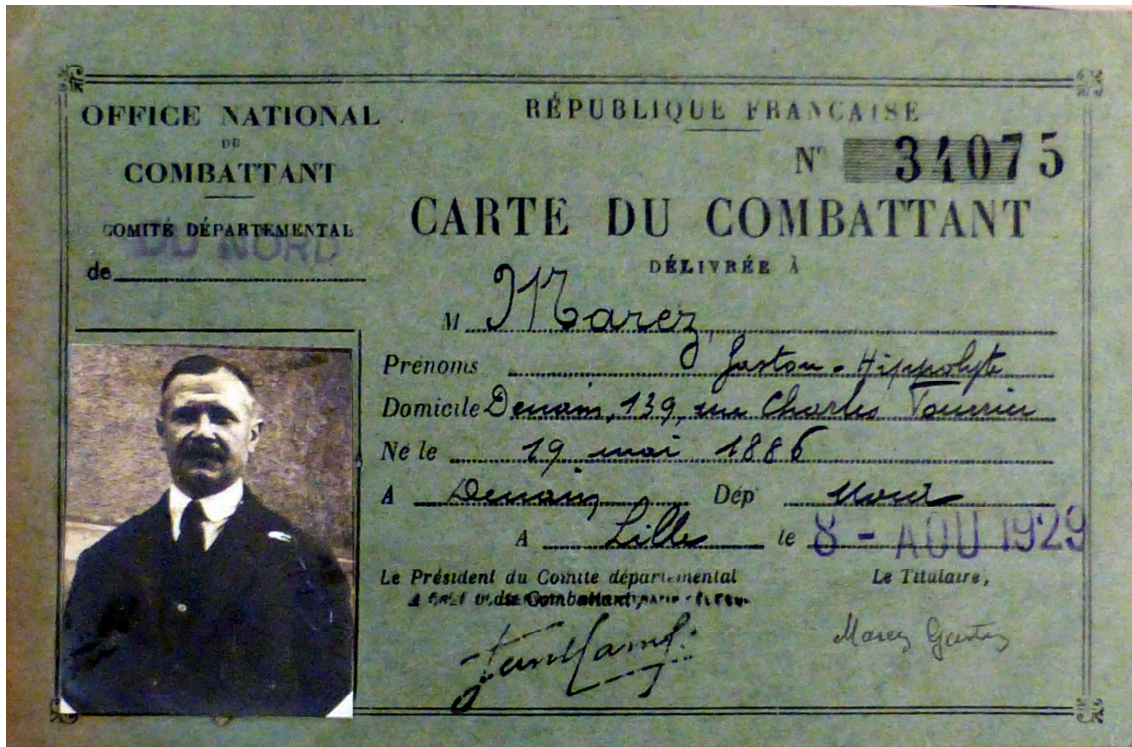 OFFICE NATIONAL
DU
COMBATTANT
COMITÉ DÉPARTEMENTAL
DU NORD
de
RÉPUBLIQUE FRANÇAISE
N° 34075
CARTE DU COMBATTANT
DÉLIVRÉE À
M Marez
Prénoms Gaston-Hippolyte
Domicile Denain, 139, rue Charles
Né le 19 mai 1886
A Denain Dép' Nord
A Lille le 8 - AOU 1929
Le Président du Comité départemental
du Combattant,
Le Titulaire,
Marez Gaston